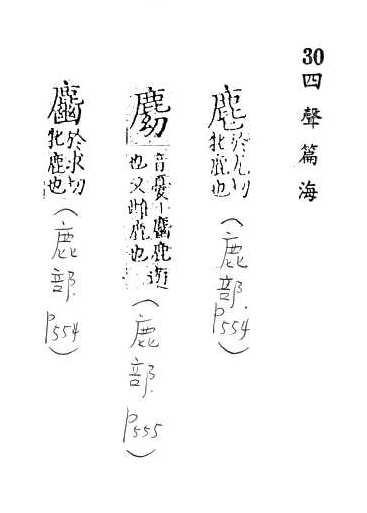 30 四聲篇海
於尤切
牝鹿也
(鹿部. P554)
音憂
也又雌鹿也
(鹿部 P555)
於求切
牝鹿也
(鹿部. P554)